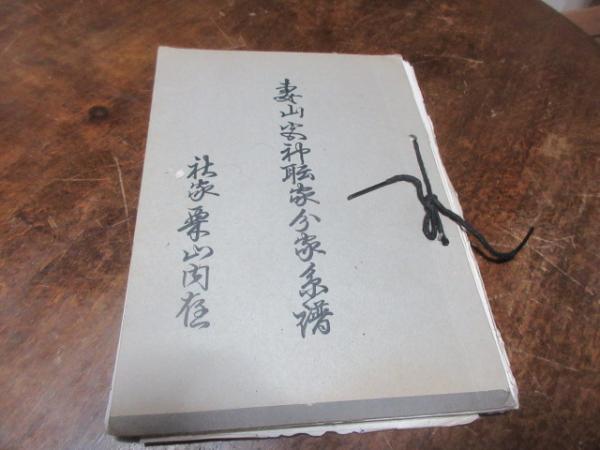 妻山家神職家分家系譜
社家栗山内在